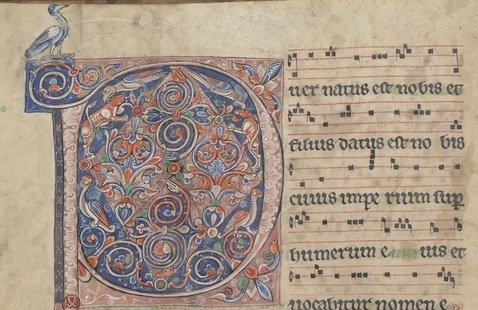 Puer natus est nobis et
filius datus est no bis
cuius impe rium sup
humerum e ius et
uocabitur nomen e